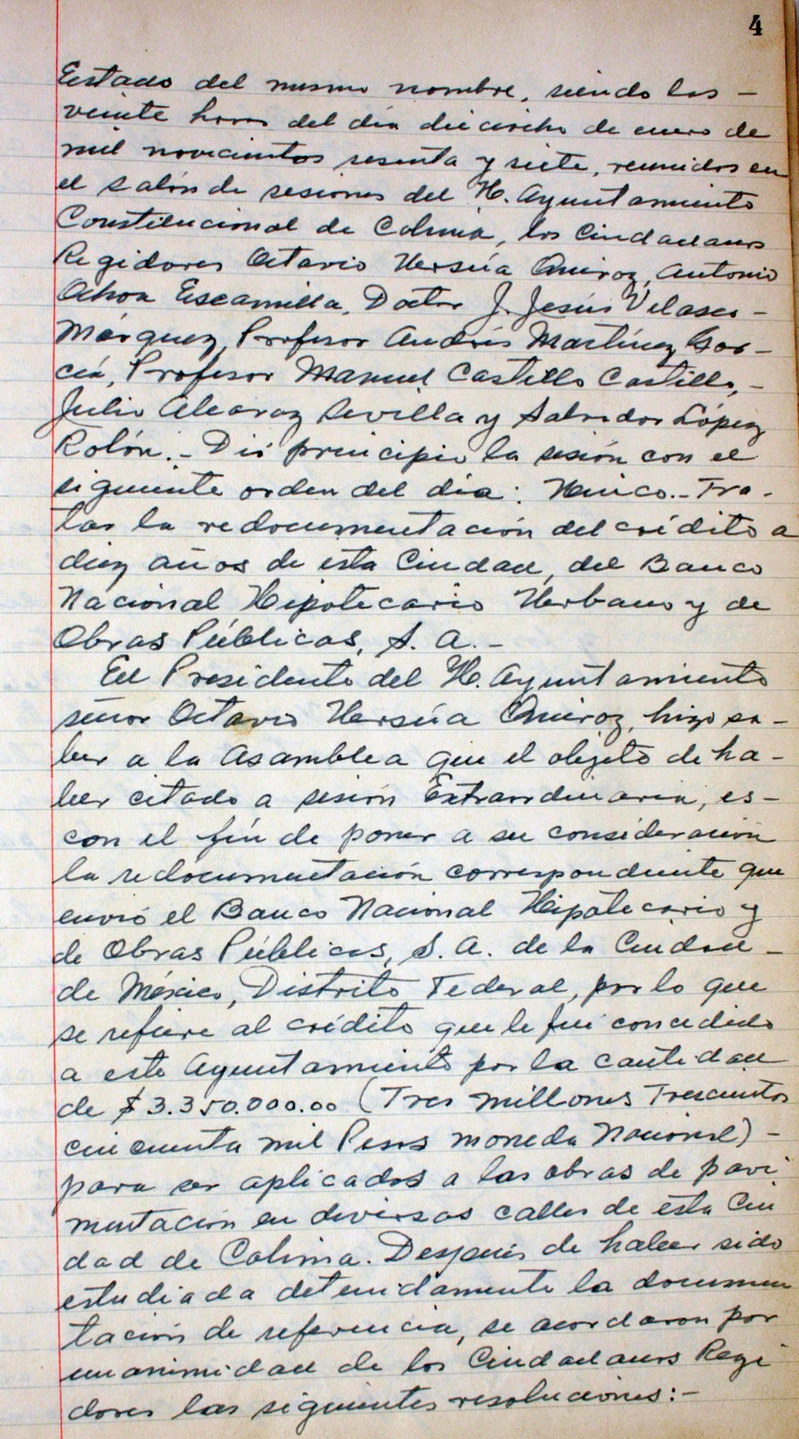 4
Estado del mismo nombre, siendo las –
veinte horas del día dieciocho de enero de
mil novecientos sesenta y siete, reunidos en
el salón de sesiones del H. Ayuntamiento
Constitucional de Colima, los Ciudadanos
Regidores Octavio Ursúa Quiroz, Antonio
Ahoa Escamilla, Doctor J. Jesús Velasco –
Márquez, Profesor Andrés Martínez Gar–
cía, Profesor Manuel Castillo Castillo, –
Julio Alcaraz Sevilla y Salvador López
Rolón. – Dió principio la sesión con el
siguiente orden del día: Unico. – Tra-
tar la redocumentación del crédito a
diez años de esta Ciudad, del Banco
Nacional Hipotecario Urbano y de
Obras Públicas, S. A. –
El Presidente del H. Ayuntamiento
señor Octavio Ursúa Quiroz, hizo sa–
ber a la Asamblea que el objeto de ha–
ber citado a sesión Extraordinaria, es–
con el fin de poner a su consideración
la redocumentación correspondiente que
envió el Banco Nacional Hipotecario y
de Obras Públicas, S. A. de la Ciudad –
de México, Distrito Federal, por lo que
se refiere al crédito que le fué concedido
a este Ayuntamiento por la cantidad
de $3.350.000.00 (Tres Millones Trescientos
cincuenta mil Pesos moneda Nacional) –
para ser aplicados a las obras de pavi
mentación en diversas calles de esta Ciu
dad de Colima. Después de haber sido
estudiada detenidamente la documen
tación de referencia, se acordaron por
unanimidad de los Ciudadanos Regi
dores las siguientes resoluciones: –